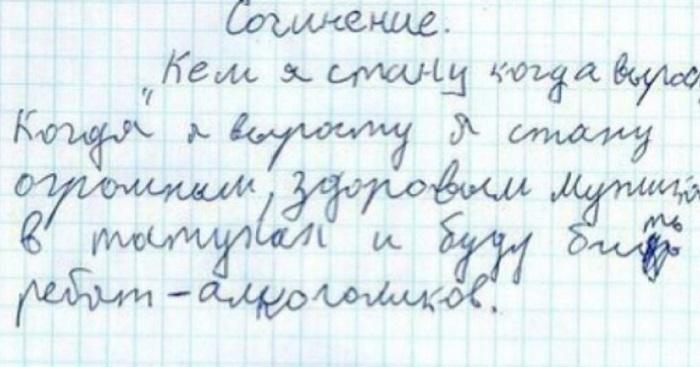 Сочинение.
"Кем я стану когда вырас
Когда я вырасту я стану
огромным, здоровым мужико
в татухах и буду бить
ребят-алкоголиков.